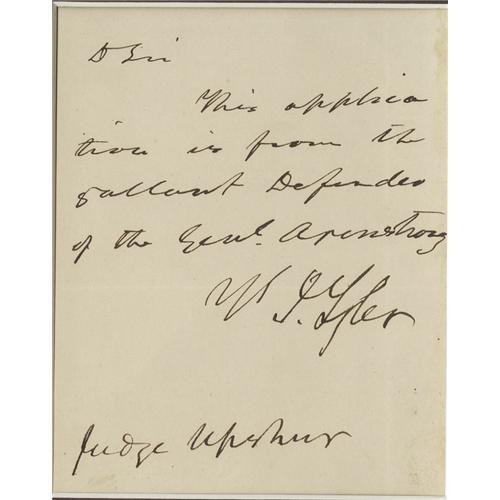 D Sir
This applica
tion is from the
gallant Defender
of the Genl. Armstrong
Yrs J. Tyler
Judge Upshur